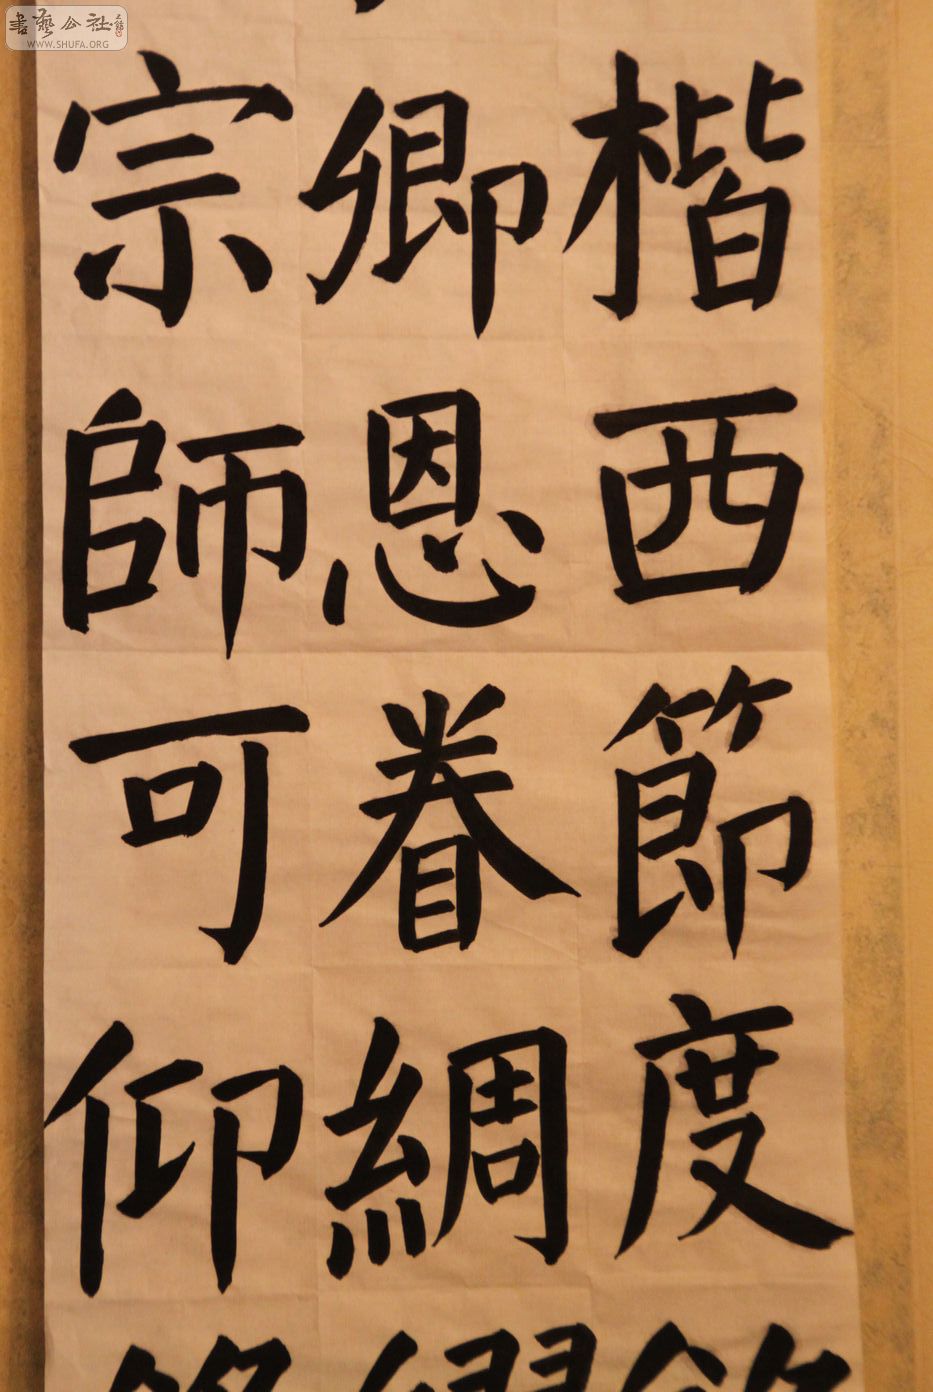 楷西節度
卿恩眷綢
宗師可仰
書藝公社
WWW.SHUFA.ORG